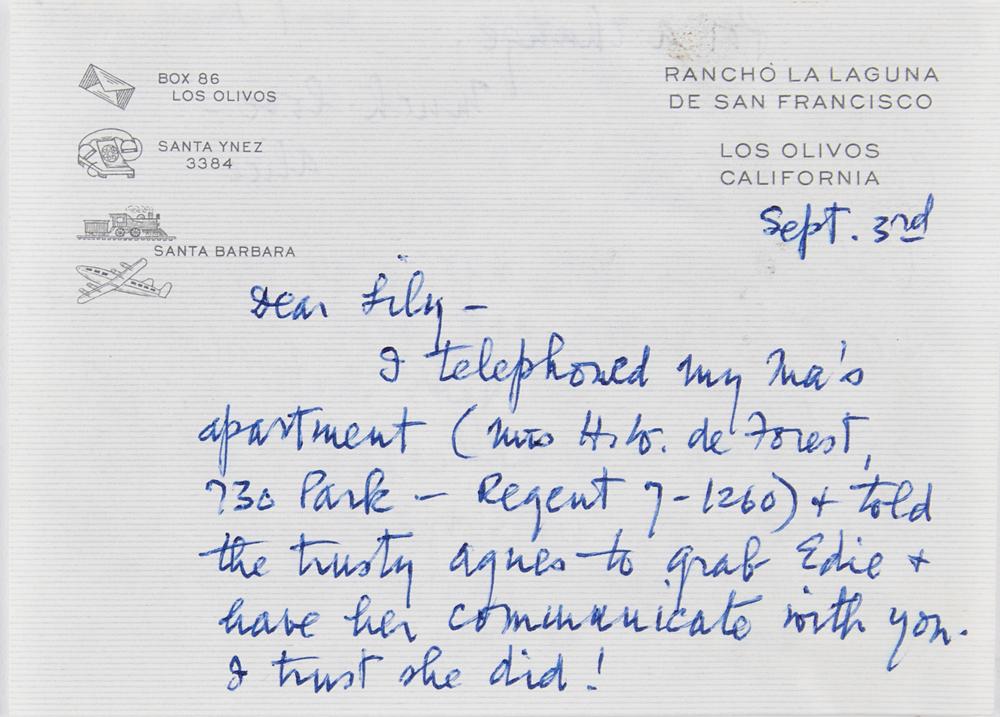 BOX 86
LOS OLIVOS
SANTA YNEZ
3384
SANTA BARBARA
RANCHO LA LAGUNA
DE SAN FRANCISCO
LOS OLIVOS
CALIFORNIA
Sept. 3rd
Dear Lily –
I telephoned my Ma's
apartment (Mrs H. W. de Forest,
730 Park – Regent 7-1260) + told
the trusty Agnes to grab Edie +
have her communicate with you.
I trust she did!